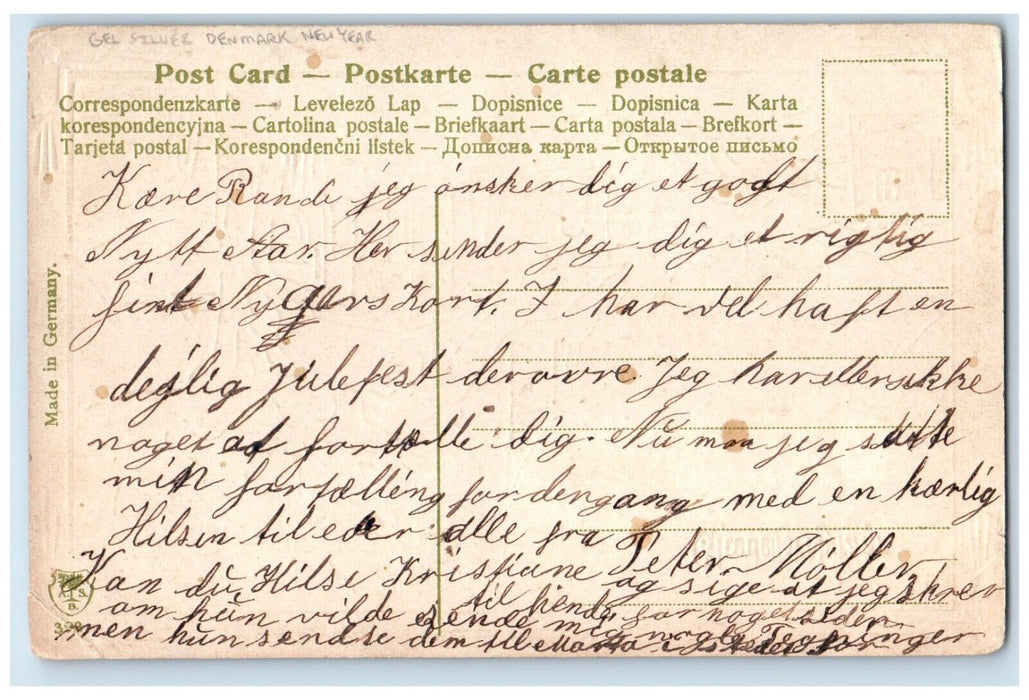 GEL SILVER DENMARK NEW YEAR
Post Card — Postkarte — Carte postale
Correspondenzkarte — Levelező Lap — Dopisnice — Dopisnica — Karta
korespondencyjna — Cartolina postale — Briefkaart — Carta postala — Brefkort —
Tarjeta postal — Korespondenčni lístek — Дописна карта — Открытое письмо
Kære Randi jeg ónsker dig et godt
Nytt Aar. Her sender jeg dig et rigtig
fint Nygars Kort. I har vel haft en
dejlig Julefest derovre. Jeg har ellers ikke
noget at fortælle dig. Nu maa jeg slutte
min fortælling for dengang med en kærlig
Hilsen til eder alle fra Peter Möller
Kan du Hilse Kristiane og sige at jeg skrev
til hende for noget siden
om hun vilde sende mig nogle Tegninger
men hun sendte dem til Marta i stedet for
Made in Germany.
B.